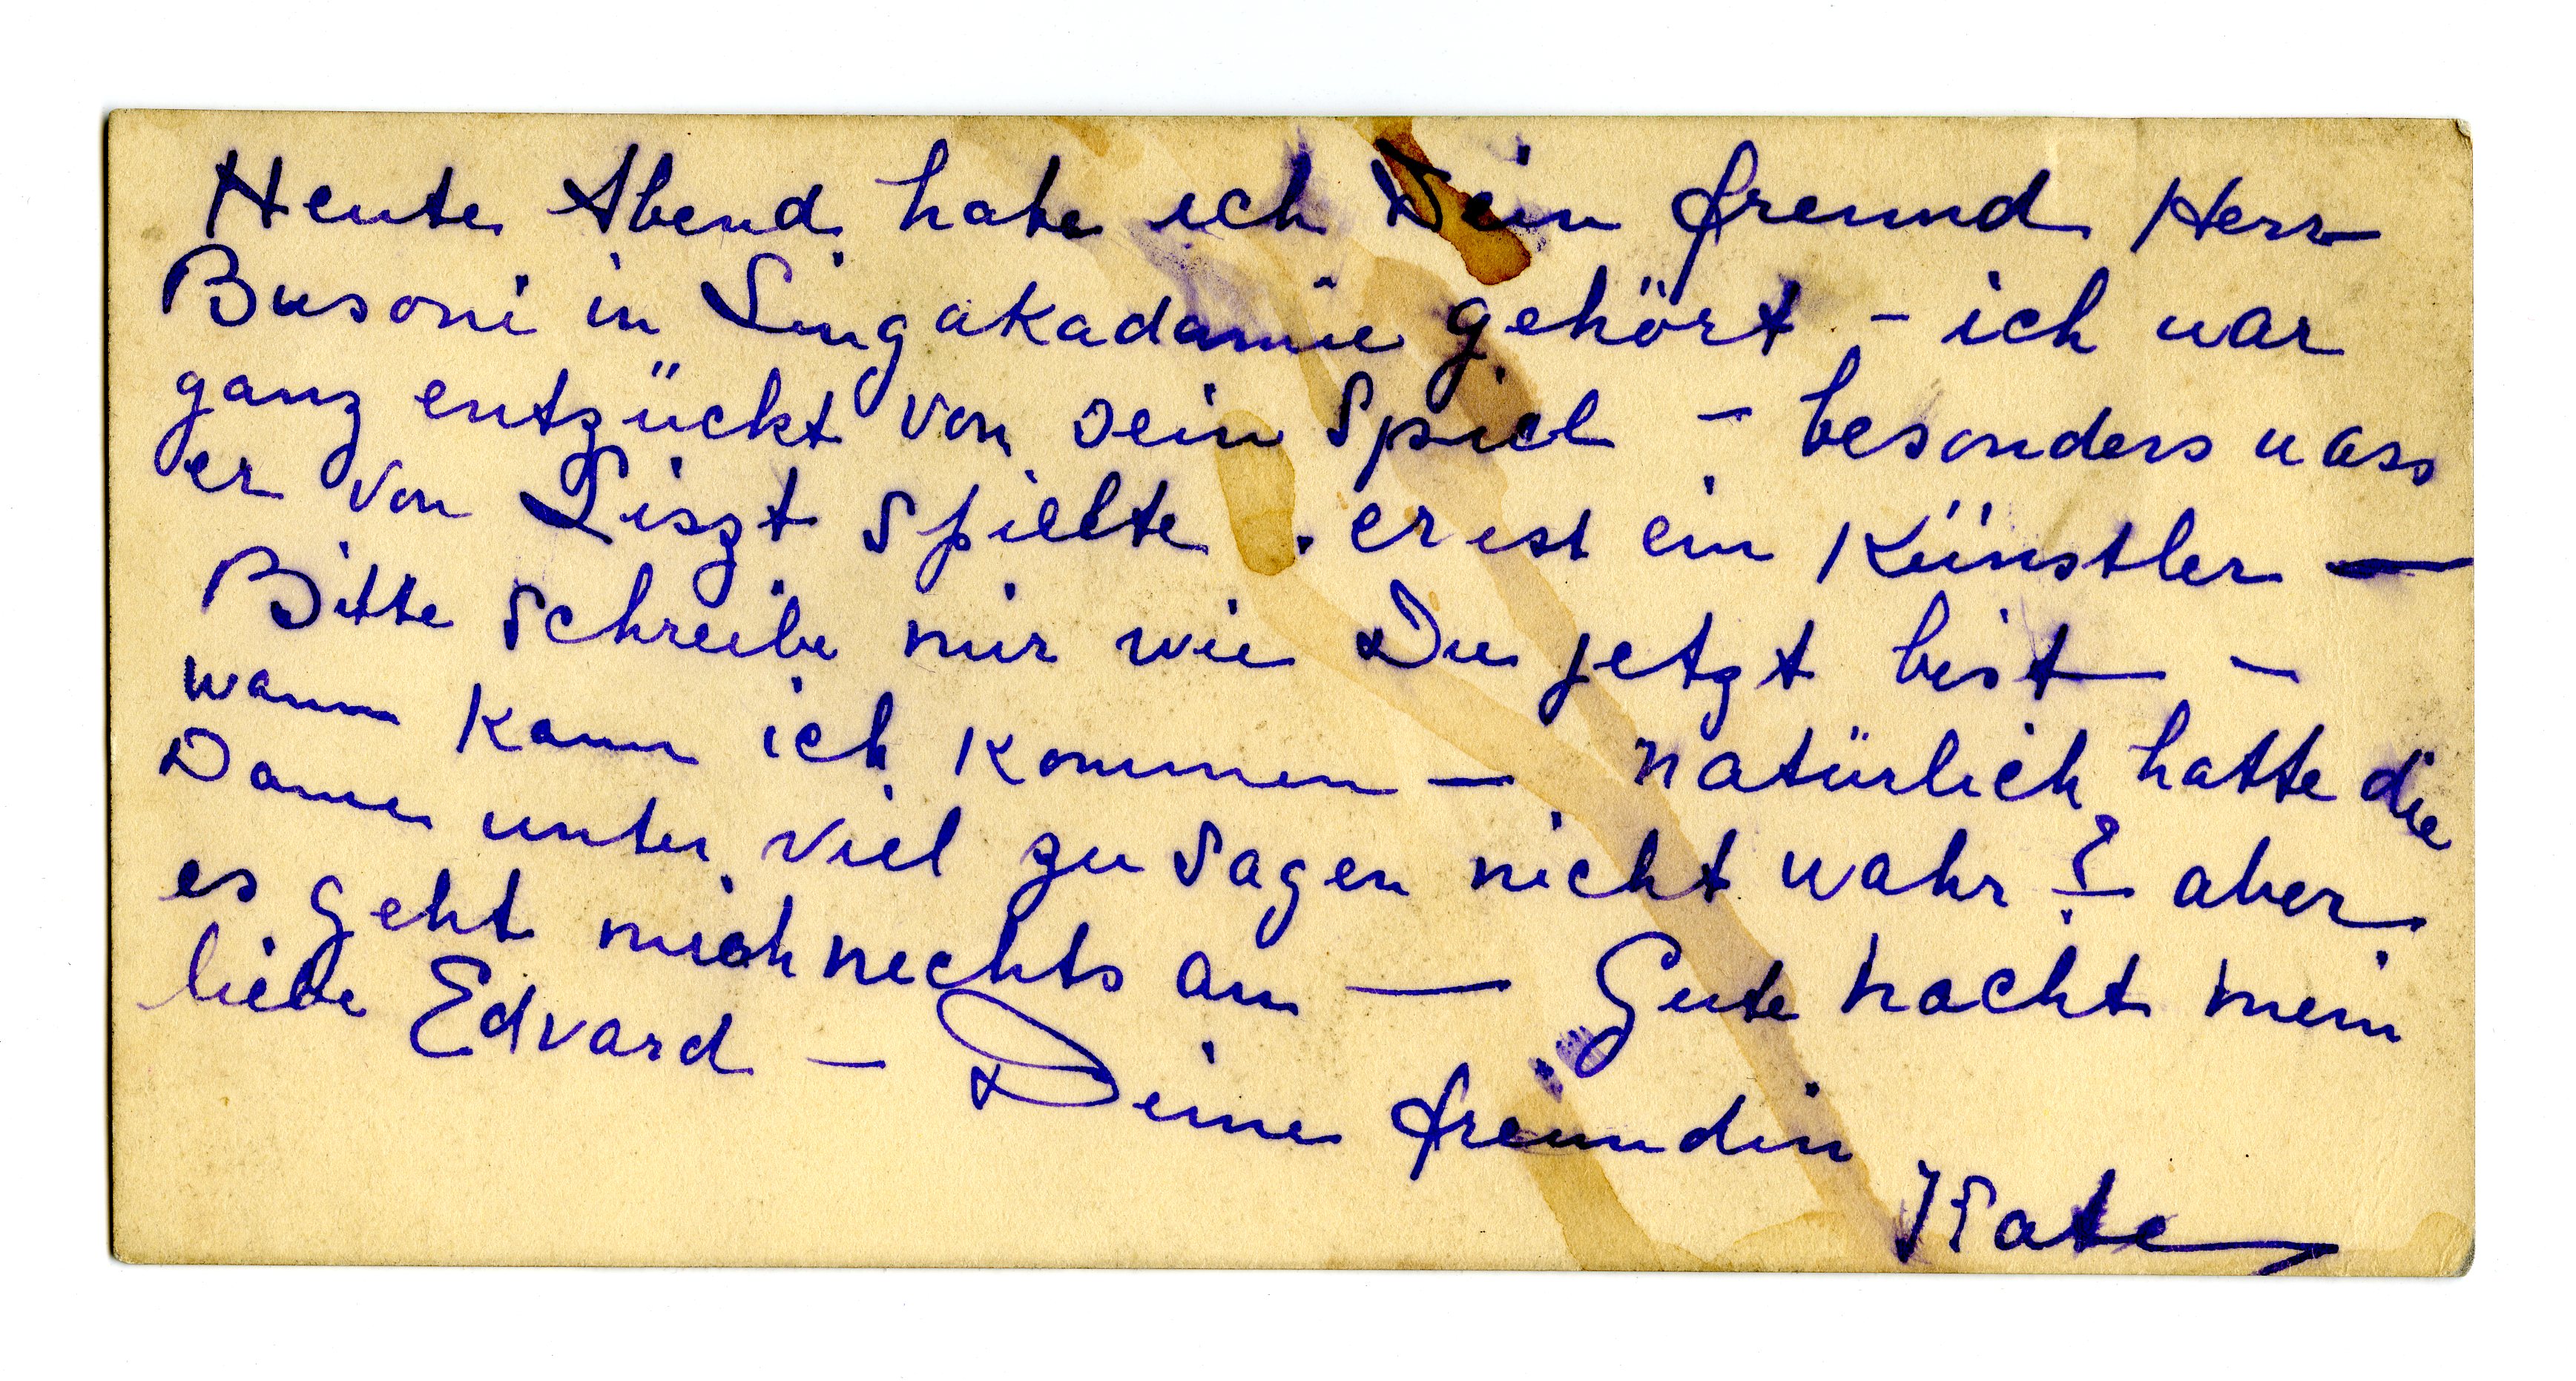 Heute Abend habe ich Dein freund Herr
Busoni in Singakadamie gehört – ich war
ganz entzückt von sein Spiel – besonders wass
er von Liszt spielte. er ist ein Künstler —
Bitte schreibe mir wie Du jetzt bist –
wann kann ich kommen – natürlich hatte die
Dame unter viel zu sagen nicht wahr? aber
es geht mich nichts an — Gute nacht mein
liebe Edvard – Deine freundin
Kate